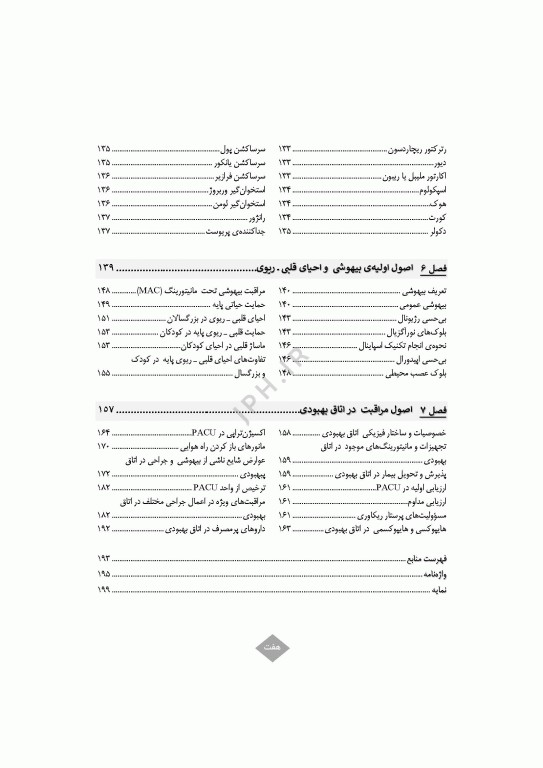 رترکتور ریچاردسون ........ ۱۳۳
دیور ........ ۱۳۳
اکارتور ملیبل یا ریبون ........ ۱۳۳
اسپکولوم ........ ۱۳۴
هوک ........ ۱۳۴
کورت ........ ۱۳۴
دکولر ........ ۱۳۵
سرساکشن پول ........ ۱۳۵
سرساکشن یانکور ........ ۱۳۵
سرساکشن فرازیر ........ ۱۳۶
استخوان‌گیر وربروژ ........ ۱۳۶
استخوان‌گیر لومن ........ ۱۳۶
رانژور ........ ۱۳۷
جداکننده‌ی پریوست ........ ۱۳۷
فصل ۶ اصول اولیه‌ی بیهوشی و احیای قلبی ـ ریوی ........ ۱۳۹
تعریف بیهوشی ........ ۱۴۰
بیهوشی عمومی ........ ۱۴۰
بی‌حسی رژیونال ........ ۱۴۳
بلوک‌های نوراگزیال ........ ۱۴۳
نحوه‌ی انجام تکنیک اسپاینال ........ ۱۴۶
بی‌حسی اپیدورال ........ ۱۴۶
بلوک عصب محیطی ........ ۱۴۸
مراقبت بیهوشی تحت مانیتورینگ (MAC) ........ ۱۴۸
حمایت حیاتی پایه ........ ۱۴۹
احیای قلبی ـ ریوی در بزرگسالان ........ ۱۵۱
حمایت قلبی ـ ریوی پایه در کودکان ........ ۱۵۳
ماساژ قلبی در احیای کودکان ........ ۱۵۳
تفاوت‌های احیای قلبی ـ ریوی پایه در کودک
و بزرگسال ........ ۱۵۵
فصل ۷ اصول مراقبت در اتاق بهبودی ........ ۱۵۷
خصوصیات و ساختار فیزیکی اتاق بهبودی ........ ۱۵۸
تجهیزات و مانیتورینگ‌های موجود در اتاق
بهبودی ........ ۱۵۹
پذیرش و تحویل بیمار در اتاق بهبودی ........ ۱۵۹
ارزیابی اولیه در PACU ........ ۱۶۱
ارزیابی مداوم ........ ۱۶۱
مسؤولیت‌های پرستار ریکاوری ........ ۱۶۱
هایپوکسی و هایپوکسمی در اتاق بهبودی ........ ۱۶۳
اکسیژن‌تراپی در PACU ........ ۱۶۴
مانورهای باز کردن راه هوایی ........ ۱۷۰
عوارض شایع ناشی از بیهوشی و جراحی در اتاق
بهبودی ........ ۱۷۲
ترخیص از واحد PACU ........ ۱۸۲
مراقبت‌های ویژه در اعمال جراحی مختلف در اتاق
بهبودی ........ ۱۸۲
داروهای پرمصرف در اتاق بهبودی ........ ۱۹۲
فهرست منابع ........ ۱۹۳
واژه‌نامه ........ ۱۹۵
نمایه ........ ۱۹۹
JPH.IR
هفت